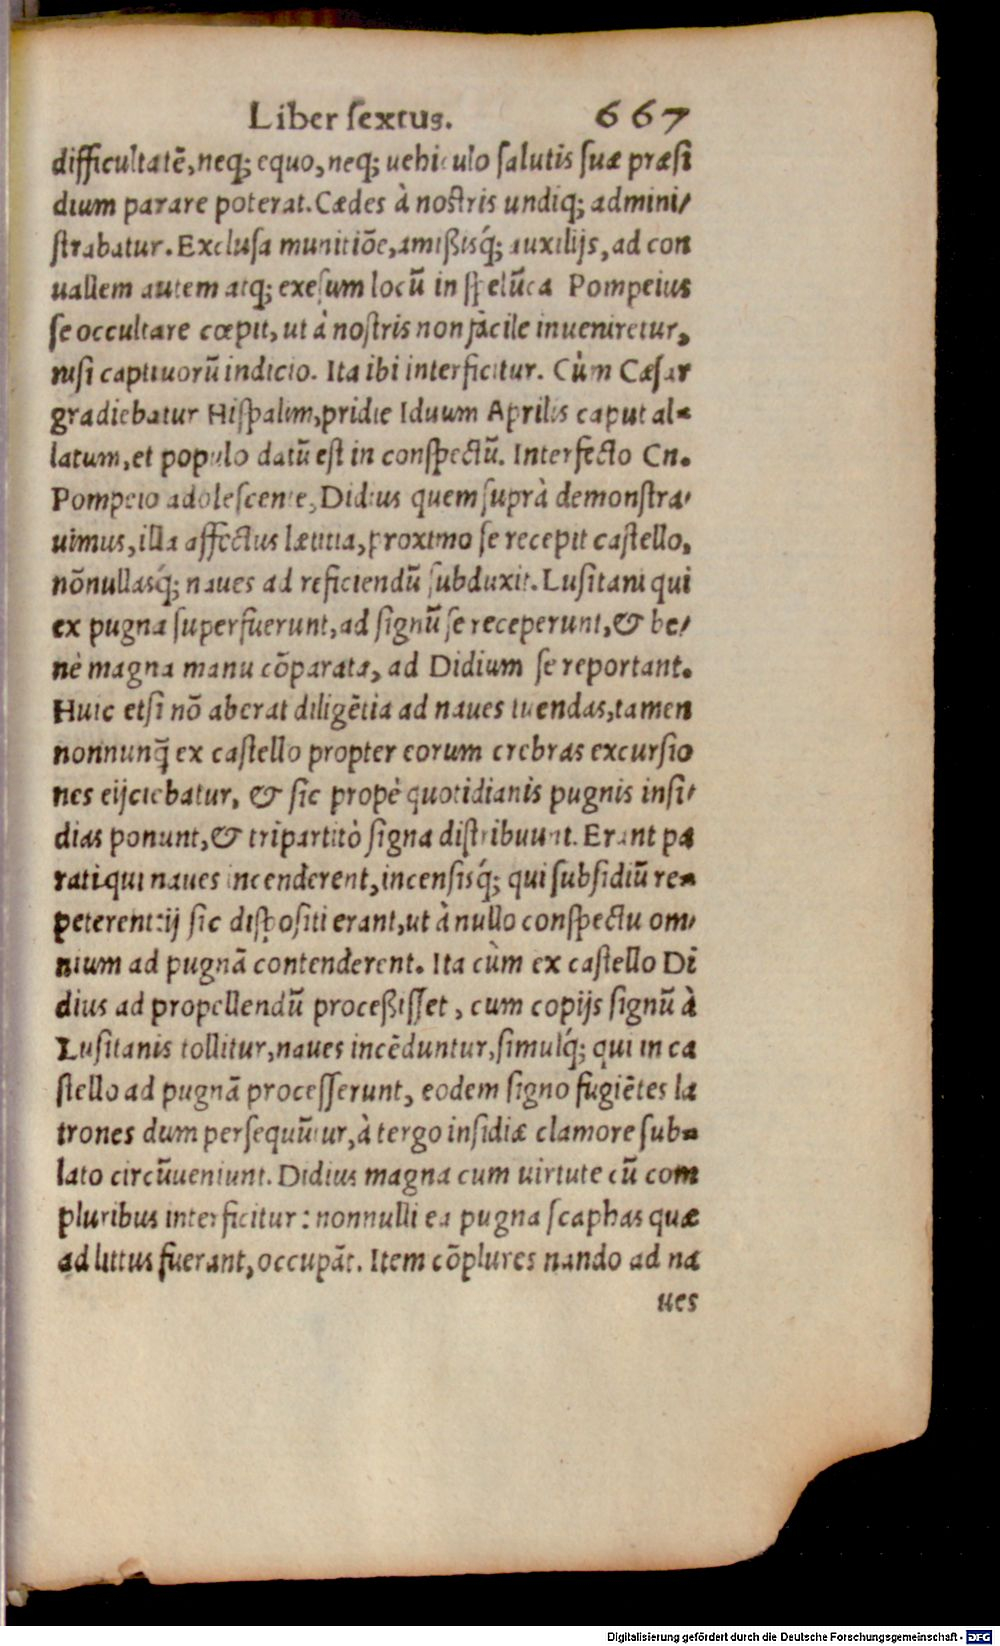 Liber ſextus. 667
difficultatē, neq; equo, neq; uehiculo ſalutis ſuæ præſi
dium parare poterat. Cædes à noſtris undiq; admini⸗
ſtrabatur. Excluſa munitiōe, amißisq́; auxilijs, ad con
uallem autem atq; exeſum locū in ſpelūca Pompeius
ſe occultare cœpit, ut à noſtris non fàcile inueniretur,
niſi captiuorū indicio. Ita ibi interficitur. Cùm Cæſar
gradiebatur Hiſpalim, pridie Iduum Aprilis caput al⸗
latum, et populo datū eſt in conſpectū. Interfecto Cn.
Pompeio adoleſcente, Didius quem ſuprà demonſtra⸗
uimus, illa affectus lætitia, proximo ſe recepit caſtello,
nōnullasq́; naues ad reficiendū ſubduxit. Luſitani qui
ex pugna ſuperfuerunt, ad ſignū ſe receperunt, & be⸗
nè magna manu cōparata, ad Didium ſe reportant.
Huic etſi nō aberat diligētia ad naues tuendas, tamen
nonnunq̃ ex caſtello propter eorum crebras excurſio
nes eijciebatur, & ſic propè quotidianis pugnis inſi⸗
dias ponunt, & tripartitò ſigna diſtribuunt. Erant pa
rati qui naues incenderent, incenſisq́; qui ſubſidiū re⸗
peterent: ij ſic diſpoſiti erant, ut à nullo conſpectu om⸗
nium ad pugnā contenderent. Ita cùm ex caſtello Di
dius ad propellendū proceßiſſet, cum copijs ſignū à
Luſitanis tollitur, naues incēduntur, ſimulq́; qui in ca
ſtello ad pugnā proceſſerunt, eodem ſigno fugiētes la
trones dum perſequūtur, à tergo inſidiæ clamore ſub⸗
lato circūueniunt. Didius magna cum uirtute cū com
pluribus interficitur: nonnulli ea pugna ſcaphas quæ
ad littus fuerant, occupāt. Item cōplures nando ad na
ues
Digitalisierung gefördert durch die Deutsche Forschungsgemeinschaft - DFG